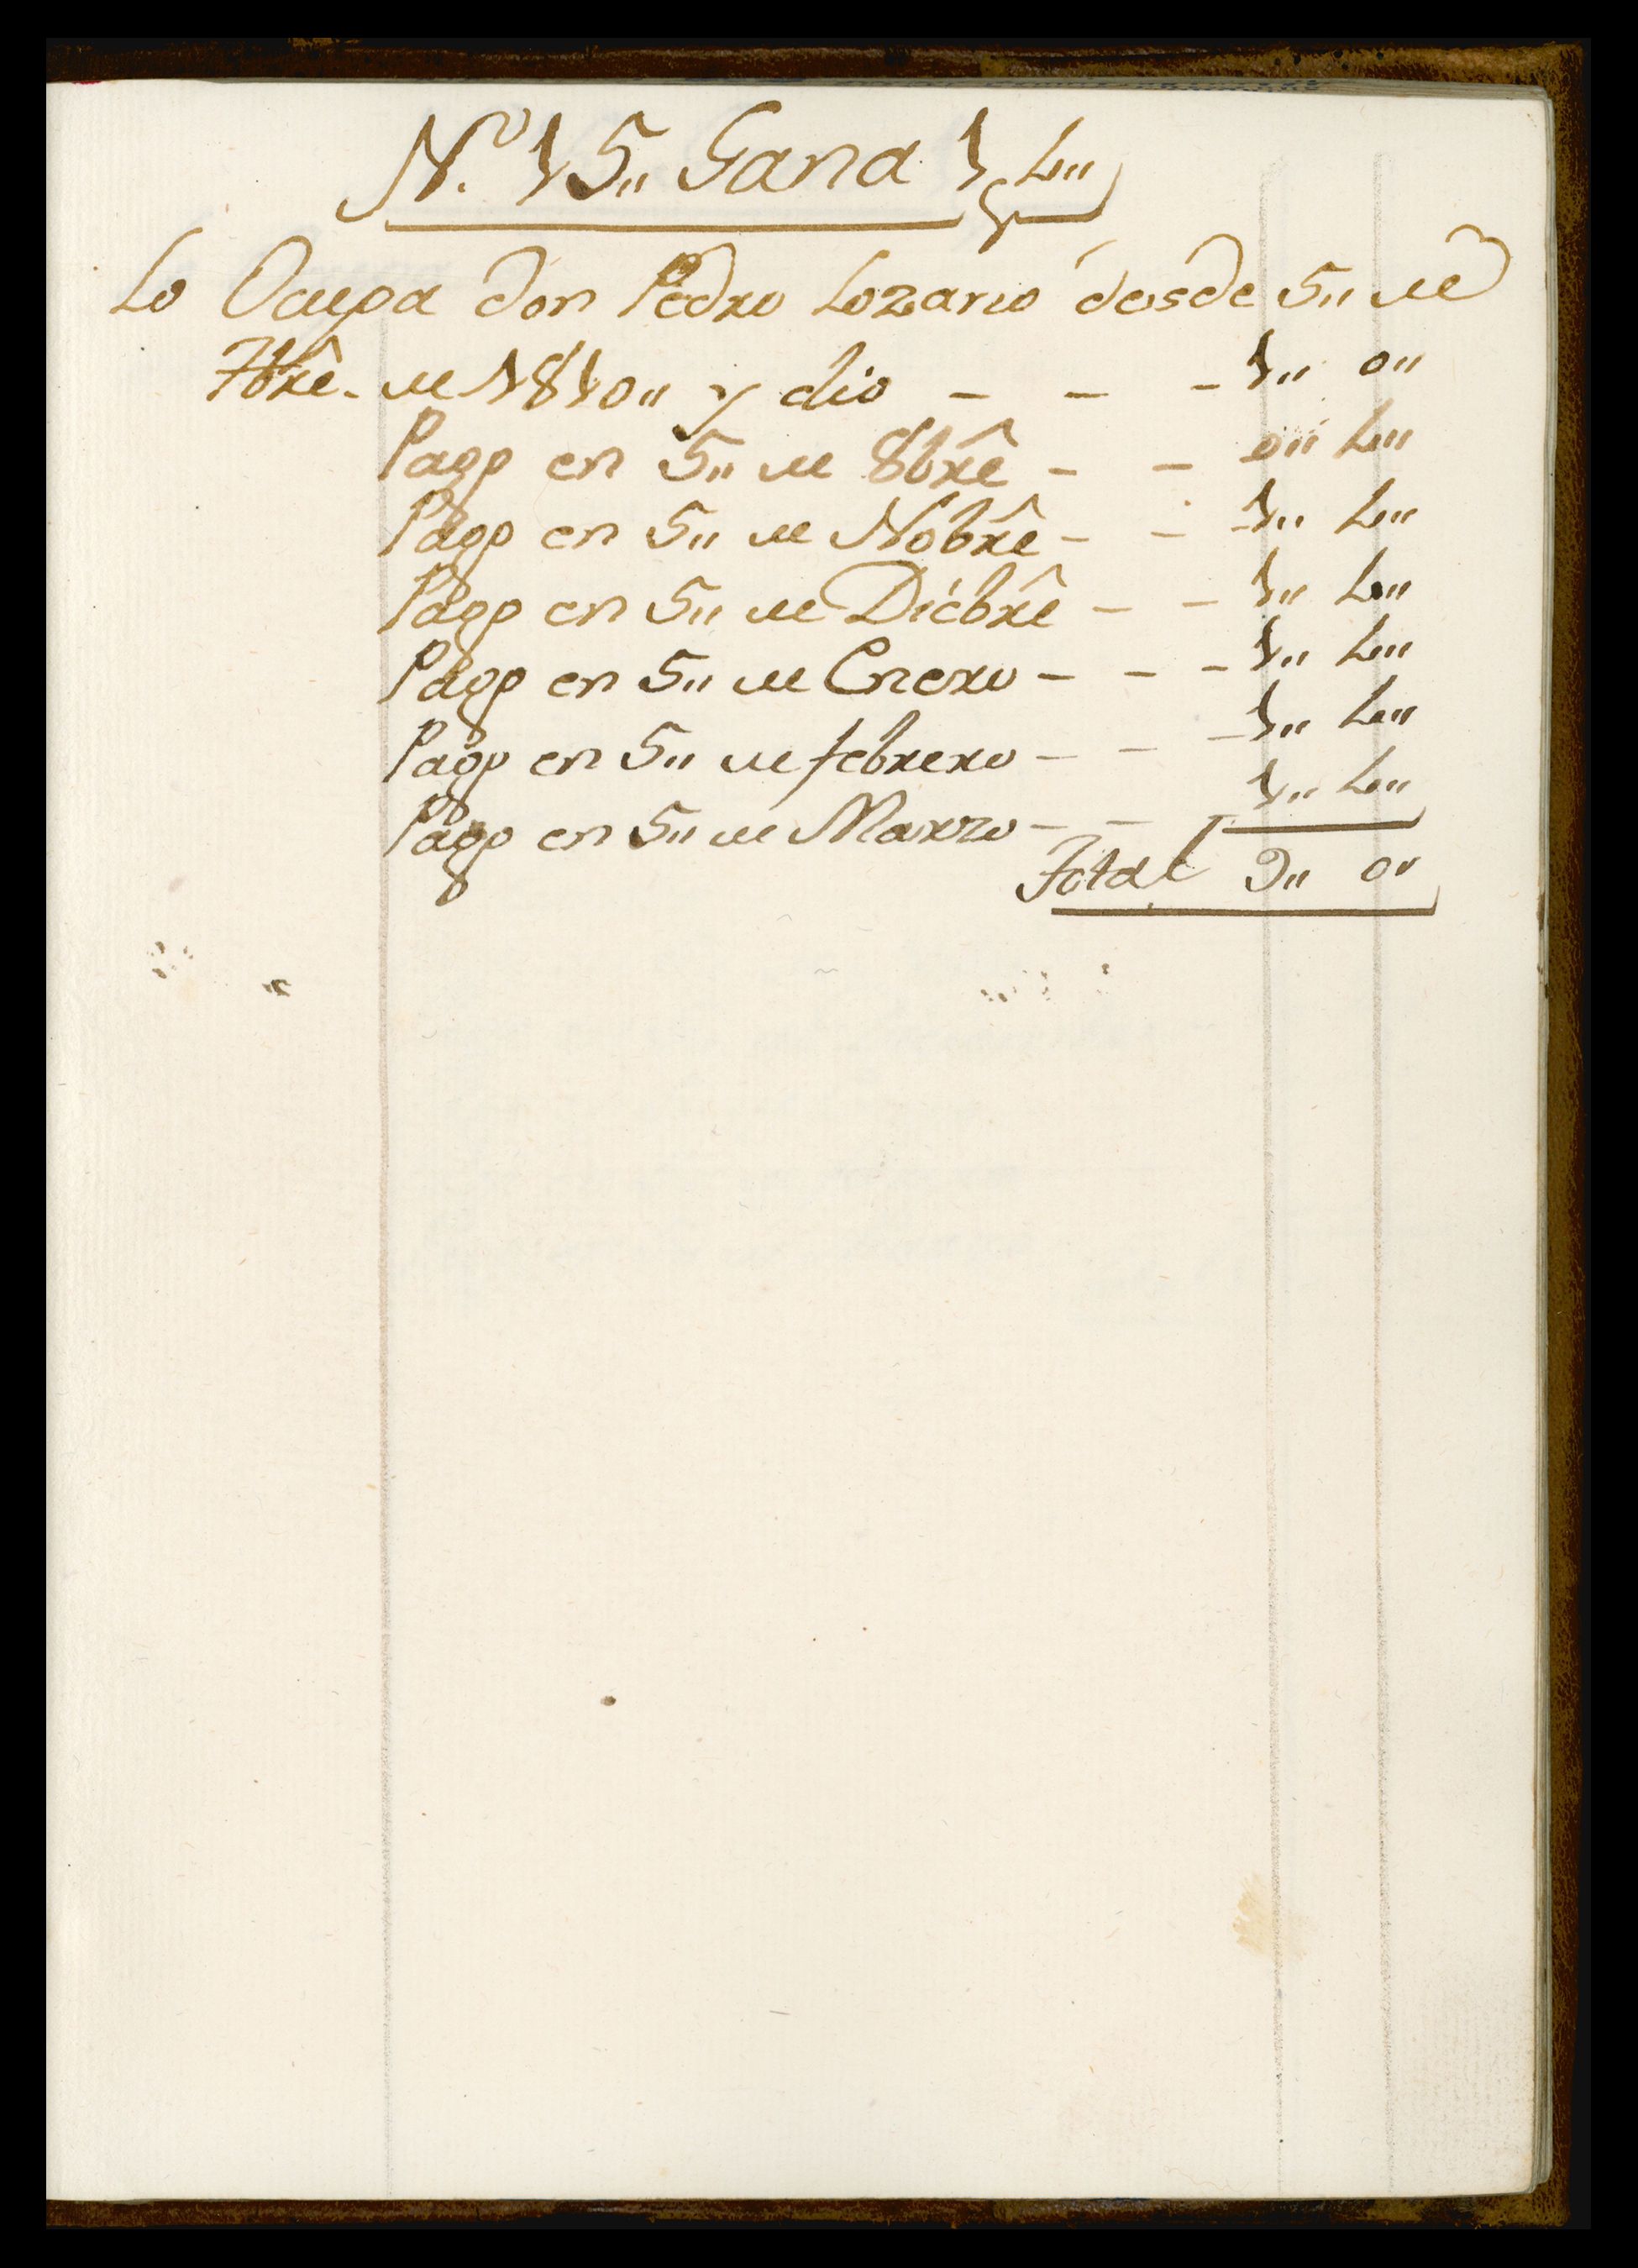 N.º 15,, Gana 1,, 4,,
Lo Ocupa don Pedro Lozano desde 5,, de
7brê. de 1810,, y dio - - - 1,, 0,,
Pagó en 5,, de 8brê - - 0,, 4,,
Pagó en 5,, de Nobrê - - 1,, 4,,
Pagó en 5,, de Dicbrê - - 1,, 4,,
Pagó en 5,, de Enero - - - 1,, 4,,
Pagó en 5,, de febrero - - - 1,, 4,,
Pagó en 5,, de Marzo - - 1,, 4,,
Total 9,, 0,,